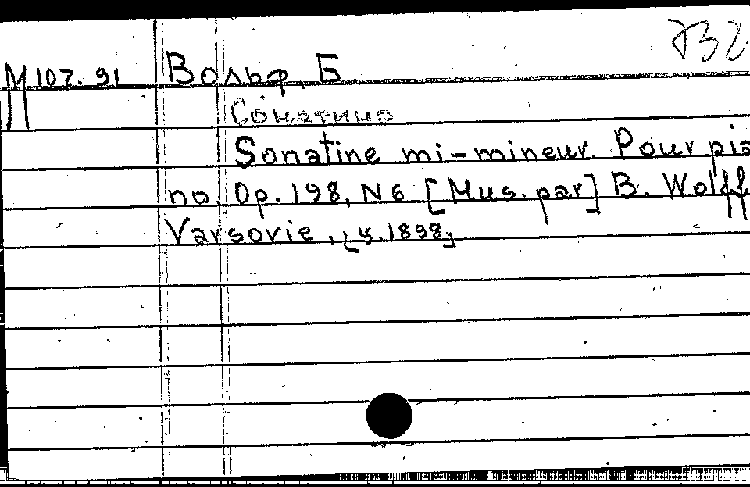 732
М107.91 Вольф, Б
Сонатина
Sonatine mi-mineur. Pour pia
no. Op. 198, N6 [Mus. par] B. Wolff
Varsovie, [ц. 1898]